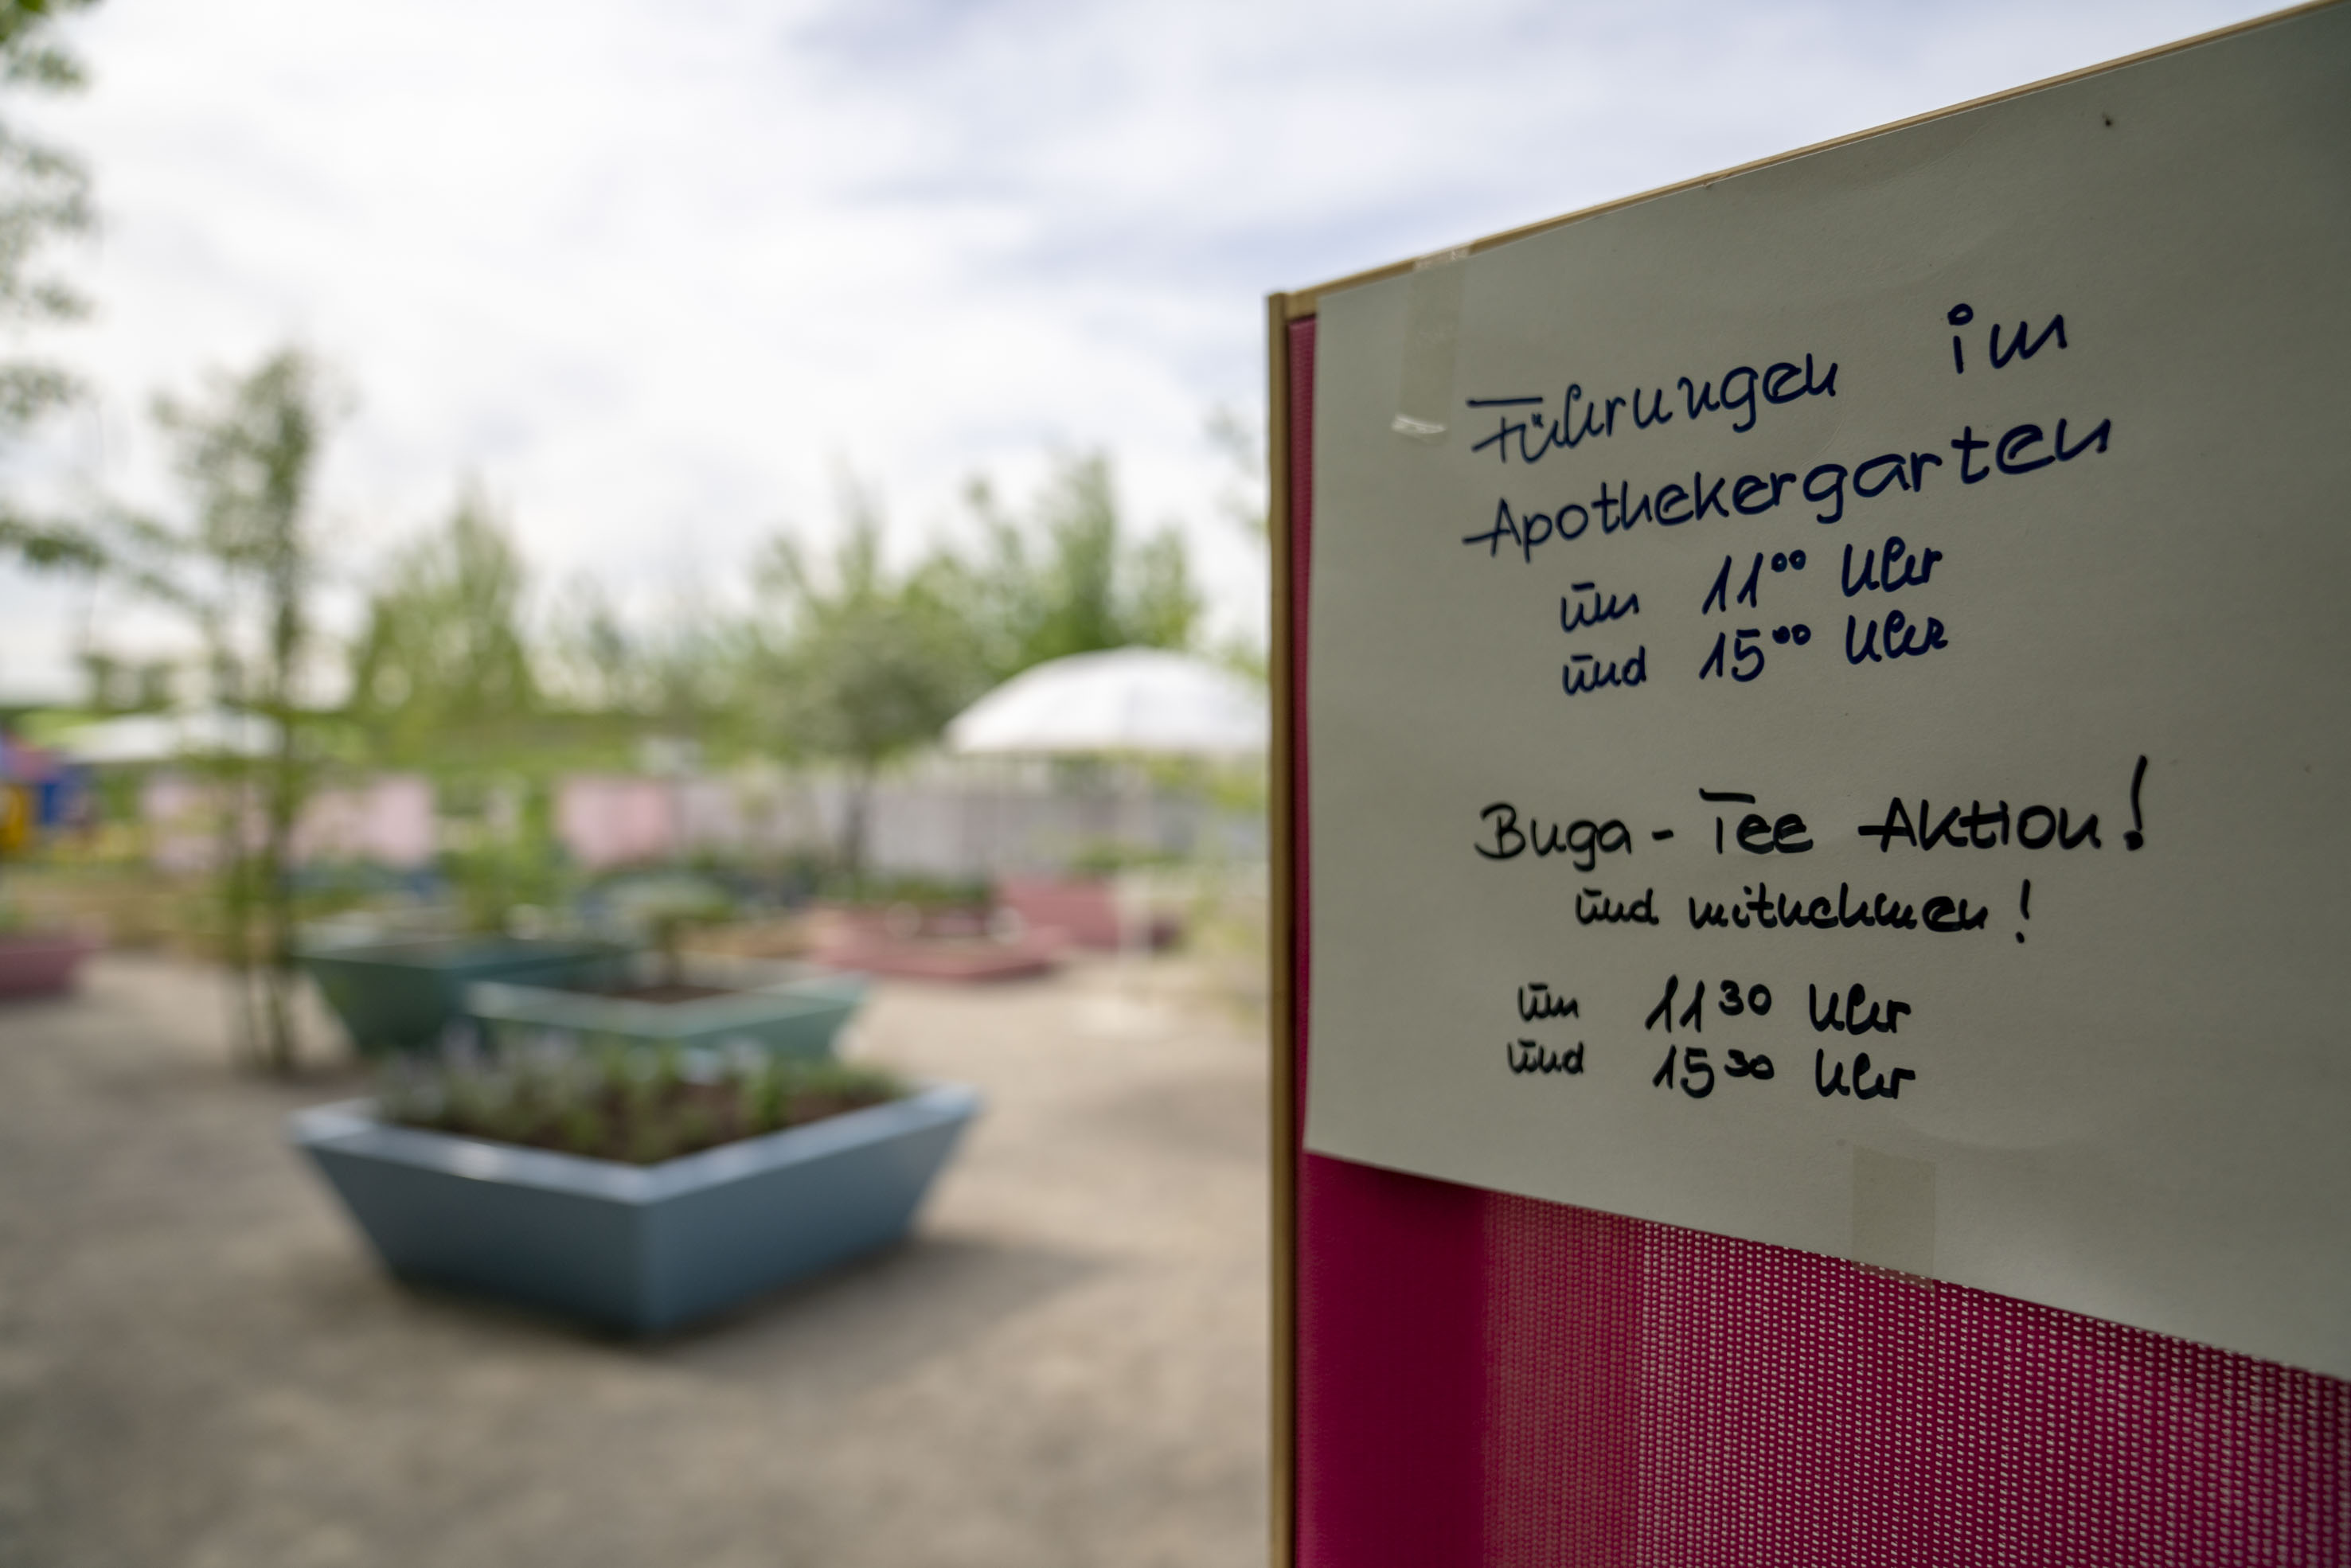 Führungen im
Apothekergarten
um 11⁰⁰ Uhr
und 15⁰⁰ Uhr
Buga - Tee Aktion!
und mitnehmen!
um 11³⁰ Uhr
und 15³⁰ Uhr